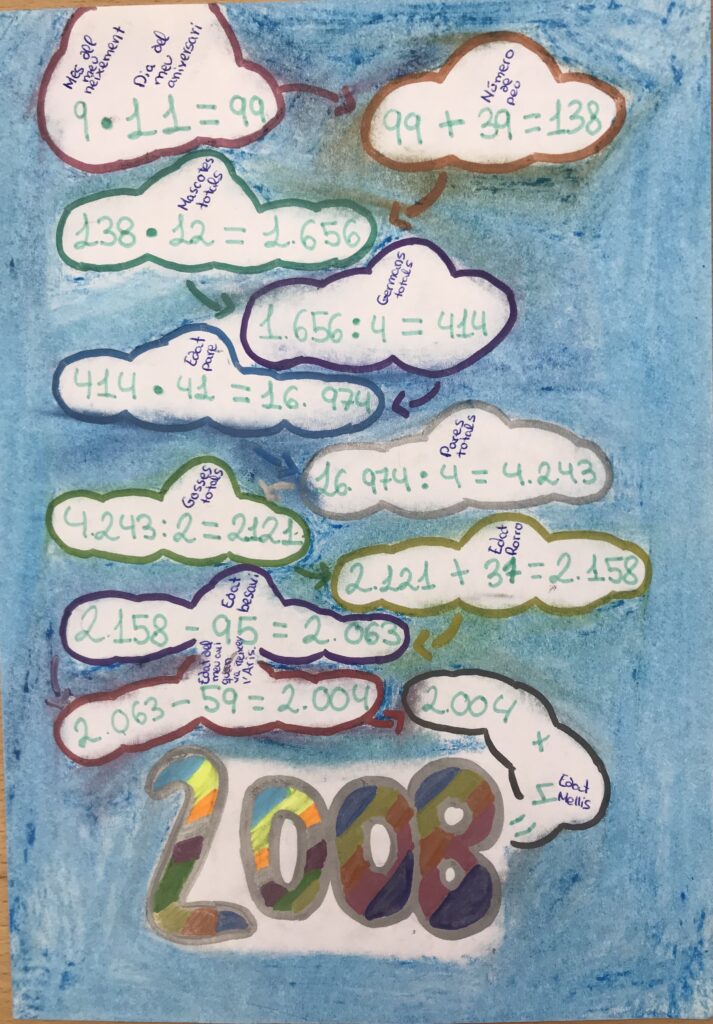 Mes del
meu
neixement
Dia del
meu
aniversari
9 • 11 = 99
Número
de
peu
99 + 39 = 138
Mascotes
totals
138 • 12 = 1.656
Germans
totals
1.656 : 4 = 414
Edat
pare
414 • 41 = 16.974
Pares
totals
16.974 : 4 = 4.243
Gosses
totals
4.243 : 2 = 2121
Edat
Rorro
2.121 + 37 = 2.158
Edat
besavi
2.158 - 95 = 2.063
Edat del
meu avi
quan
va néixer
l'Aris.
2.063 - 59 = 2.004
2.004
+
Edat
Mellis
=
2008